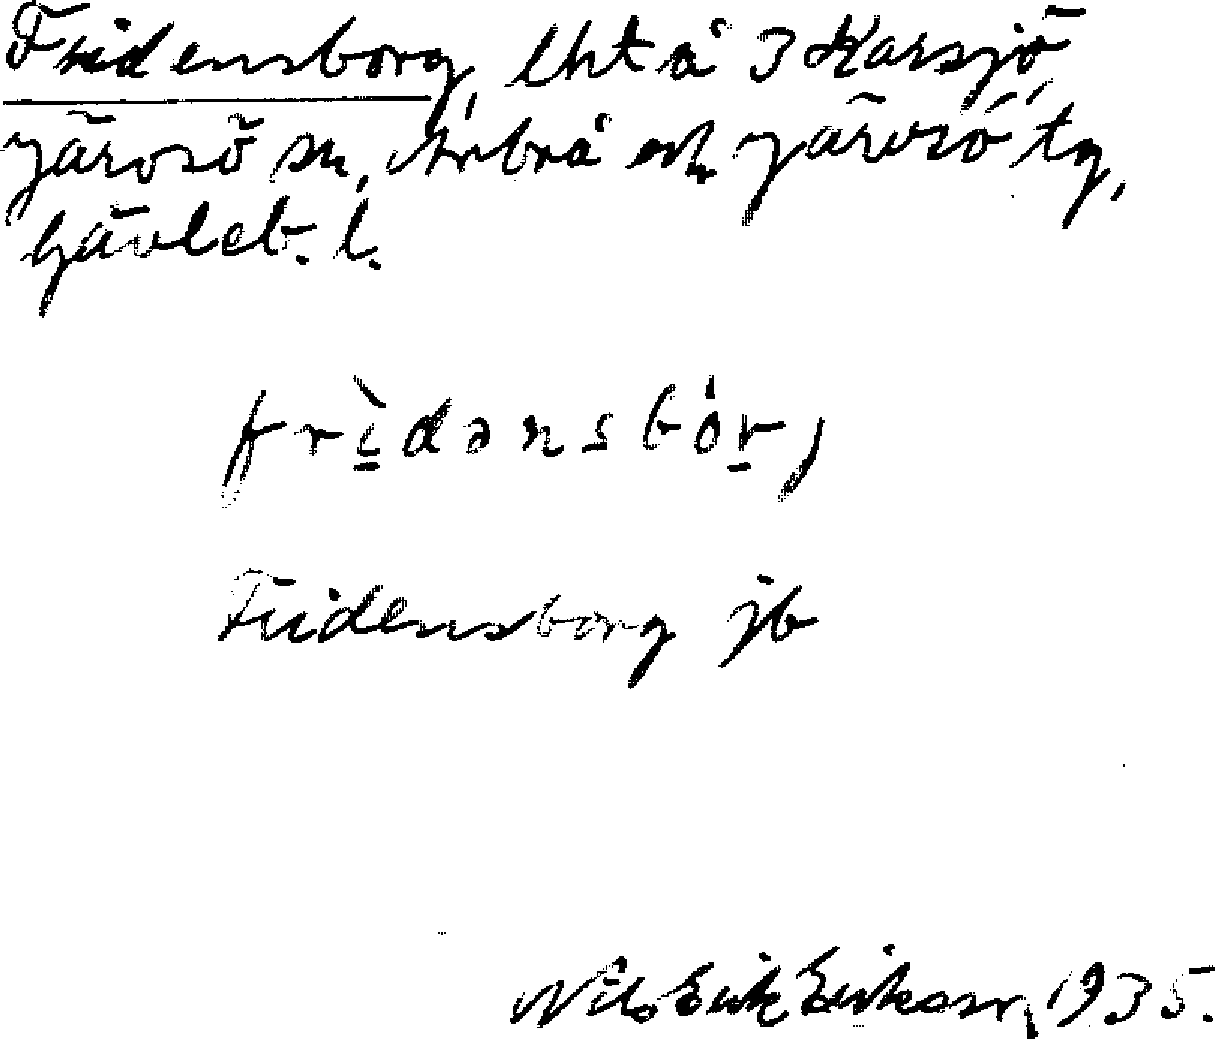 Fridensborg, lht å 3 Karsjö,
Järvsö sn, Arbrå och Järvsö tg,
Gävleb. l.
frìdənsbór,
Fridensborg jb
Nils Erik Erikson, 1935.